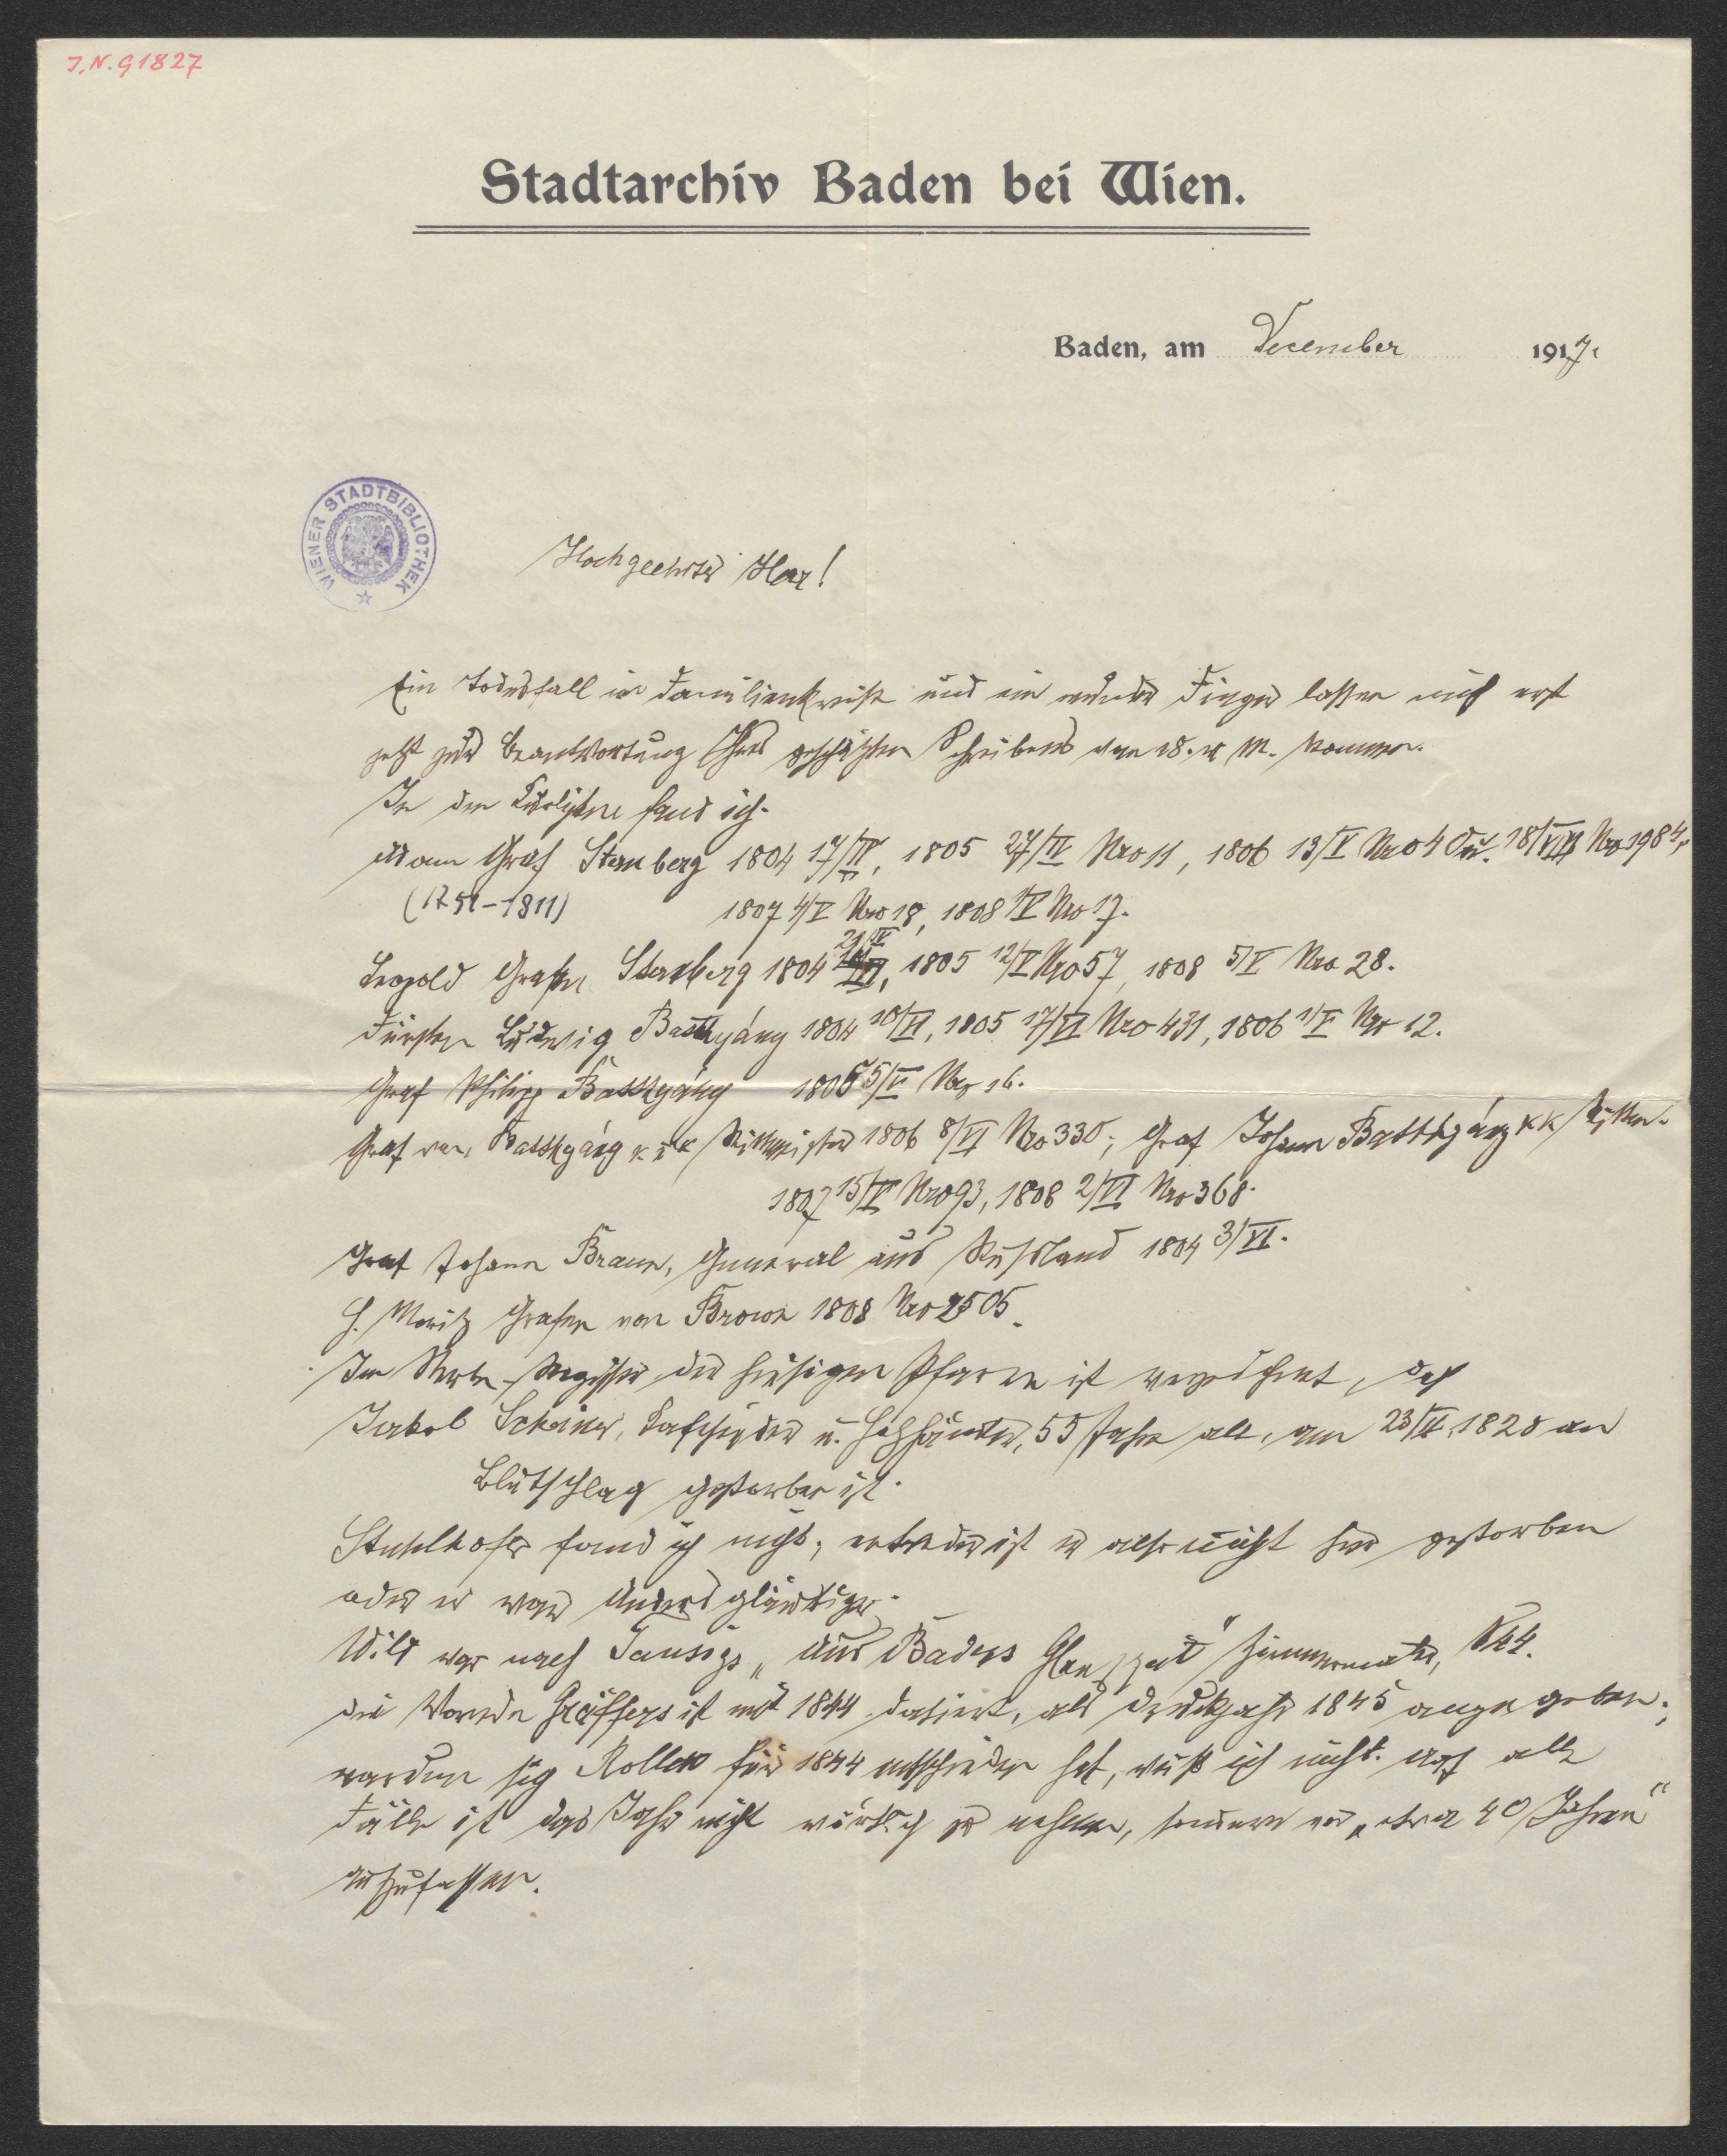 J.N. 91827
Stadtarchiv Baden bei Wien.
Baden, am December 1917.
WIENER STADTBIBLIOTHEK
Hochgeehrter Herr!
Ein Todesfall im Familienkreise und ein wunder Finger lassen mich erst
jetzt zur Beantwortung Ihres geschätzten Schreibens vom 18. v. M. kommen.
In den Kurlisten fand ich:
Adam Graf Sternberg 1804 17/IV, 1805 27/IV Nro 11, 1806 13/V Nro 40 u. 18/VIII Nro 1984,
(1751–1811) 1807 4/V Nro 18, 1808 1/V Nro 17.
Leopold Grafen Sternberg 1804 21/IV, 1805 12/V Nro 57, 1808 5/V Nro 28.
Fürsten Ludwig Batthyány 1804 10/VI, 1805 17/VI Nro 431, 1806 1/V Nro 12.
Graf Philipp Batthyány 1806 5/V Nro 16.
Graf von Batthyány k. u. k. Rittmeister 1806 8/VI Nro 330; Graf Johann Batthyány k k Rittm.
1807 15/V Nro 93, 1808 2/VI Nro 368.
Graf Johann Braun, General aus Russland 1804 3/VI.
H. Moritz Grafen von Brown 1808 Nro 2505.
Im Sterbe-Register der hiesigen Pfarre ist verzeichnet, daß
Jakob Schöner, u. 55 Jahre alt, am 23/II 1820 an
Blutschlag gestorben ist.
fand ich nicht; entweder ist er also nicht hier gestorben
oder er war Andersgläubiger.
Wilt war nach Tausigs „Aus Badens Glanzzeit" Zimmermaler, S 44.
die Vorrede Gräffers ist mit 1844 datiert, als Druckjahr 1845 angegeben;
warum sich Rollett für 1844 entschieden hat, weiß ich nicht. Auf alle
Fälle ist das Jahr nicht wörtlich zu nehmen, sondern vor „etwa 40 Jahren"
aufzufassen.